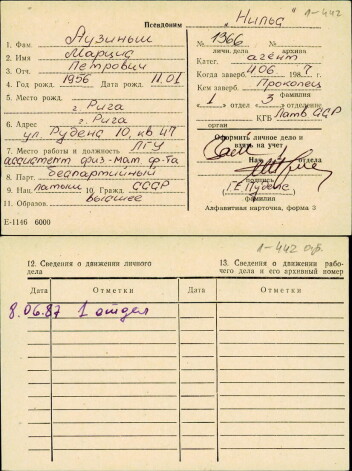 1-442
Псевдоним „Нильс"
1. Фам. Аузиньш
2. Имя Марцис
3. Отч. Петрович
4. Год рожд. 1956 Дата рожд. 11.01
5. Место рожд.
г. Рига
6. Адрес г. Рига
ул. Рудена 10, кв 47
7. Место работы и должность ЛГУ
ассистент физ-мат. ф-та
8. Парт. беспартийный
9. Нац. латыш 10. Гражд. СССР
11. Образов. высшее
Е-1146 6000
№ 1366 №
личн. дела архивн.
Катег. агент
Когда заверб. 4.06. 1987 г.
Кем заверб. Прокопец
фамилия
1 отдел 3 отделение
КГБ Латв ССР
орган
Оформить личное дело и
взять на учет
Нач. отдела
подпись
фамилия
Алфавитная карточка, форма 3
1-442 об.
12. Сведения о движении личного
дела
13. Сведения о движении рабо-
чего дела и его архивный номер
Дата Отметки Дата Отметки
8.06.87 1 отдел